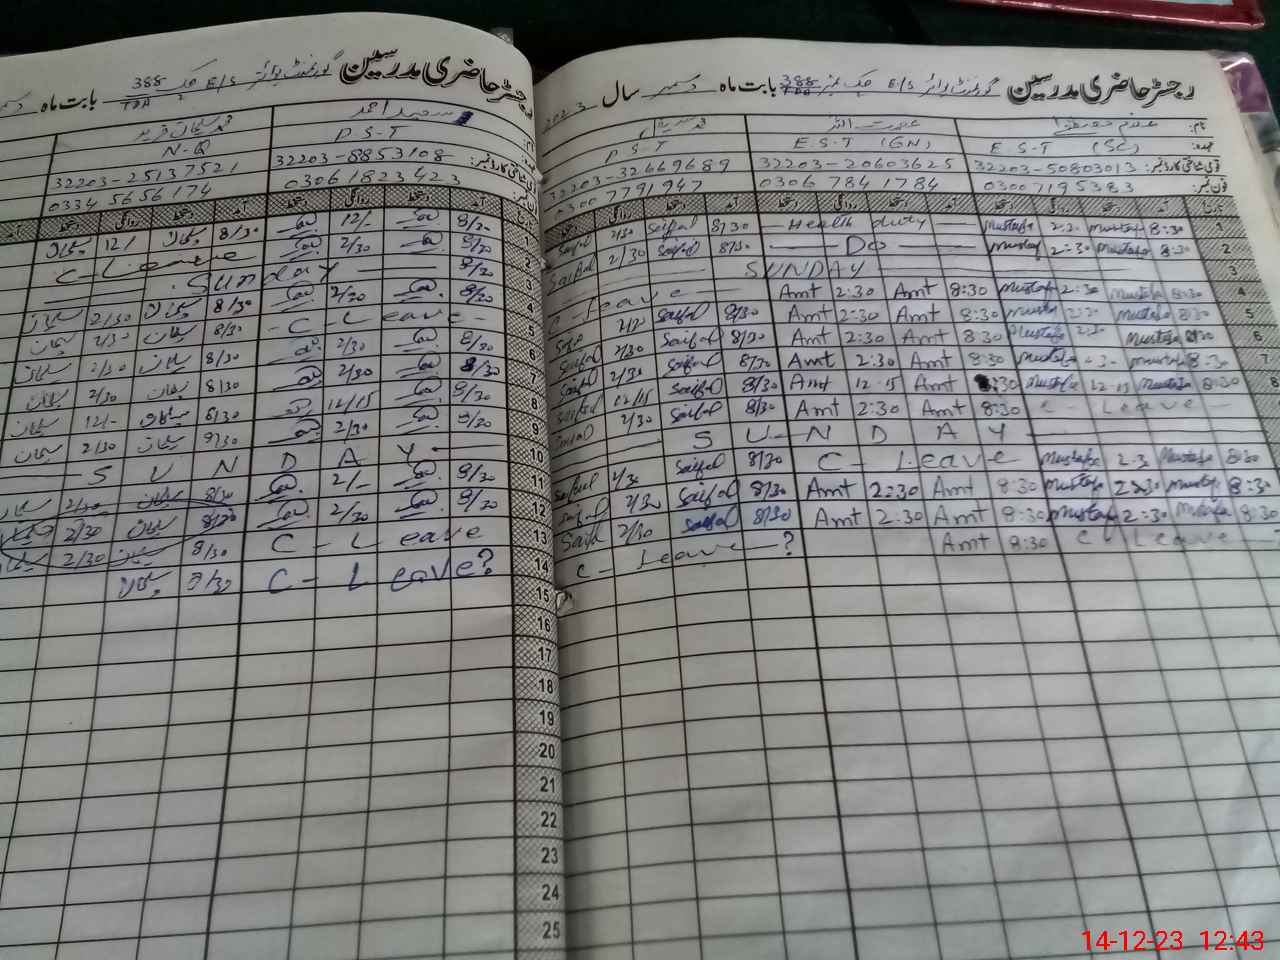 رجسٹر حاضری مدرسین گورنمنٹ بوائز E/S چک نمبر 388 TDA بابت ماہ دسمبر سال 2023
نام: غلام مصطفیٰ
عہدہ: E.S.T (SC) E.S.T (GN) P.S.T
قومی شناختی کارڈ نمبر: 32203-50803013 32203-20603625 32203-32669689
فون نمبر: 03007195383 03067841784 03007791947
تاریخ آمد دستخط روانگی دستخط آمد دستخط روانگی دستخط آمد دستخط روانگی دستخط
1 8:30 mustafa 2:30 mustafa Health duty 8/30 Saifal 2/30 Saifal
2 8:30 mustafa 2:30 mustaf Do 8/30 Saifal 2/30 Saifal
3 SUNDAY
4 8:30 mustafa 2:30 mustafa 8:30 Amt 2:30 Amt C-Leave
5 8:30 mustafa 2:30 mustafa 8:30 Amt 2:30 Amt 8/30 Saifal 2/30
6 8:30 mustafa 2:30 mustafa 8:30 Amt 2:30 Amt 8/30 Saifal 2/30 Saifal
7 8:30 mustafa mustafa 8:30 Amt 2:30 Amt 8/30 Saifal 2/30 Saifal
8 8:30 mustafa 12-15 mustafa 8:30 Amt 12-15 Amt 8/30 Saifal 12/15 Saifal
C-Leave 8:30 Amt 2:30 Amt 8/30 Saifal 2/30
SUNDAY
8:30 mustafa 2:30 mustafa C-Leave 8/30 Saifal 2/30 Saifal
8:30 mustafa 2:30 mustafa 8:30 Amt 2:30 Amt 8/30 Saifal 2/30 Saifal
8:30 mustafa 2:30 mustaf 8:30 Amt 2:30 Amt 8/30 Saifal 2/30 Saifal
C-Leave 8:30 Amt C-Leave-?
رجسٹر حاضری مدرسین گورنمنٹ بوائز E/S چک 388 TDA بابت ماہ
سعید احمد محمد سلمان فرید
P.S.T N-Q
قومی شناختی کارڈ نمبر: 32203-8853108 32203-25137521
فون نمبر: 03061823423 0334 5656174
تاریخ آمد دستخط روانگی دستخط آمد دستخط روانگی دستخط آمد
1 8/30 12/- 8/30 سلمان 12/- سلمان
2 8/30 2/30 C-Leave
3 Sunday
4 8/30 2/30 8/30 سلمان 2/30 سلمان
5 C-Leave 8/30 سلمان 2/30 سلمان
6 8/30 2/30 8/30 سلمان 2/30 سلمان
7 8/30 2/30 8/30 سلمان 2/30 سلمان
8 8/30 12/15 8/30 سلمان 12/- سلمان
9 8/30 2/30 8/30 سلمان 2/30 سلمان
10 SUNDAY
11 8/30 2/- 8/30 سلمان 2/30 سلمان
12 8/30 2/30 8/30 سلمان 2/30
13 C-Leave 8/30 سلمان 2/30
14 C-Leave? 8/30 سلمان
15
16
17
18
19
20
21
22
23
24
25
14-12-23 12:43